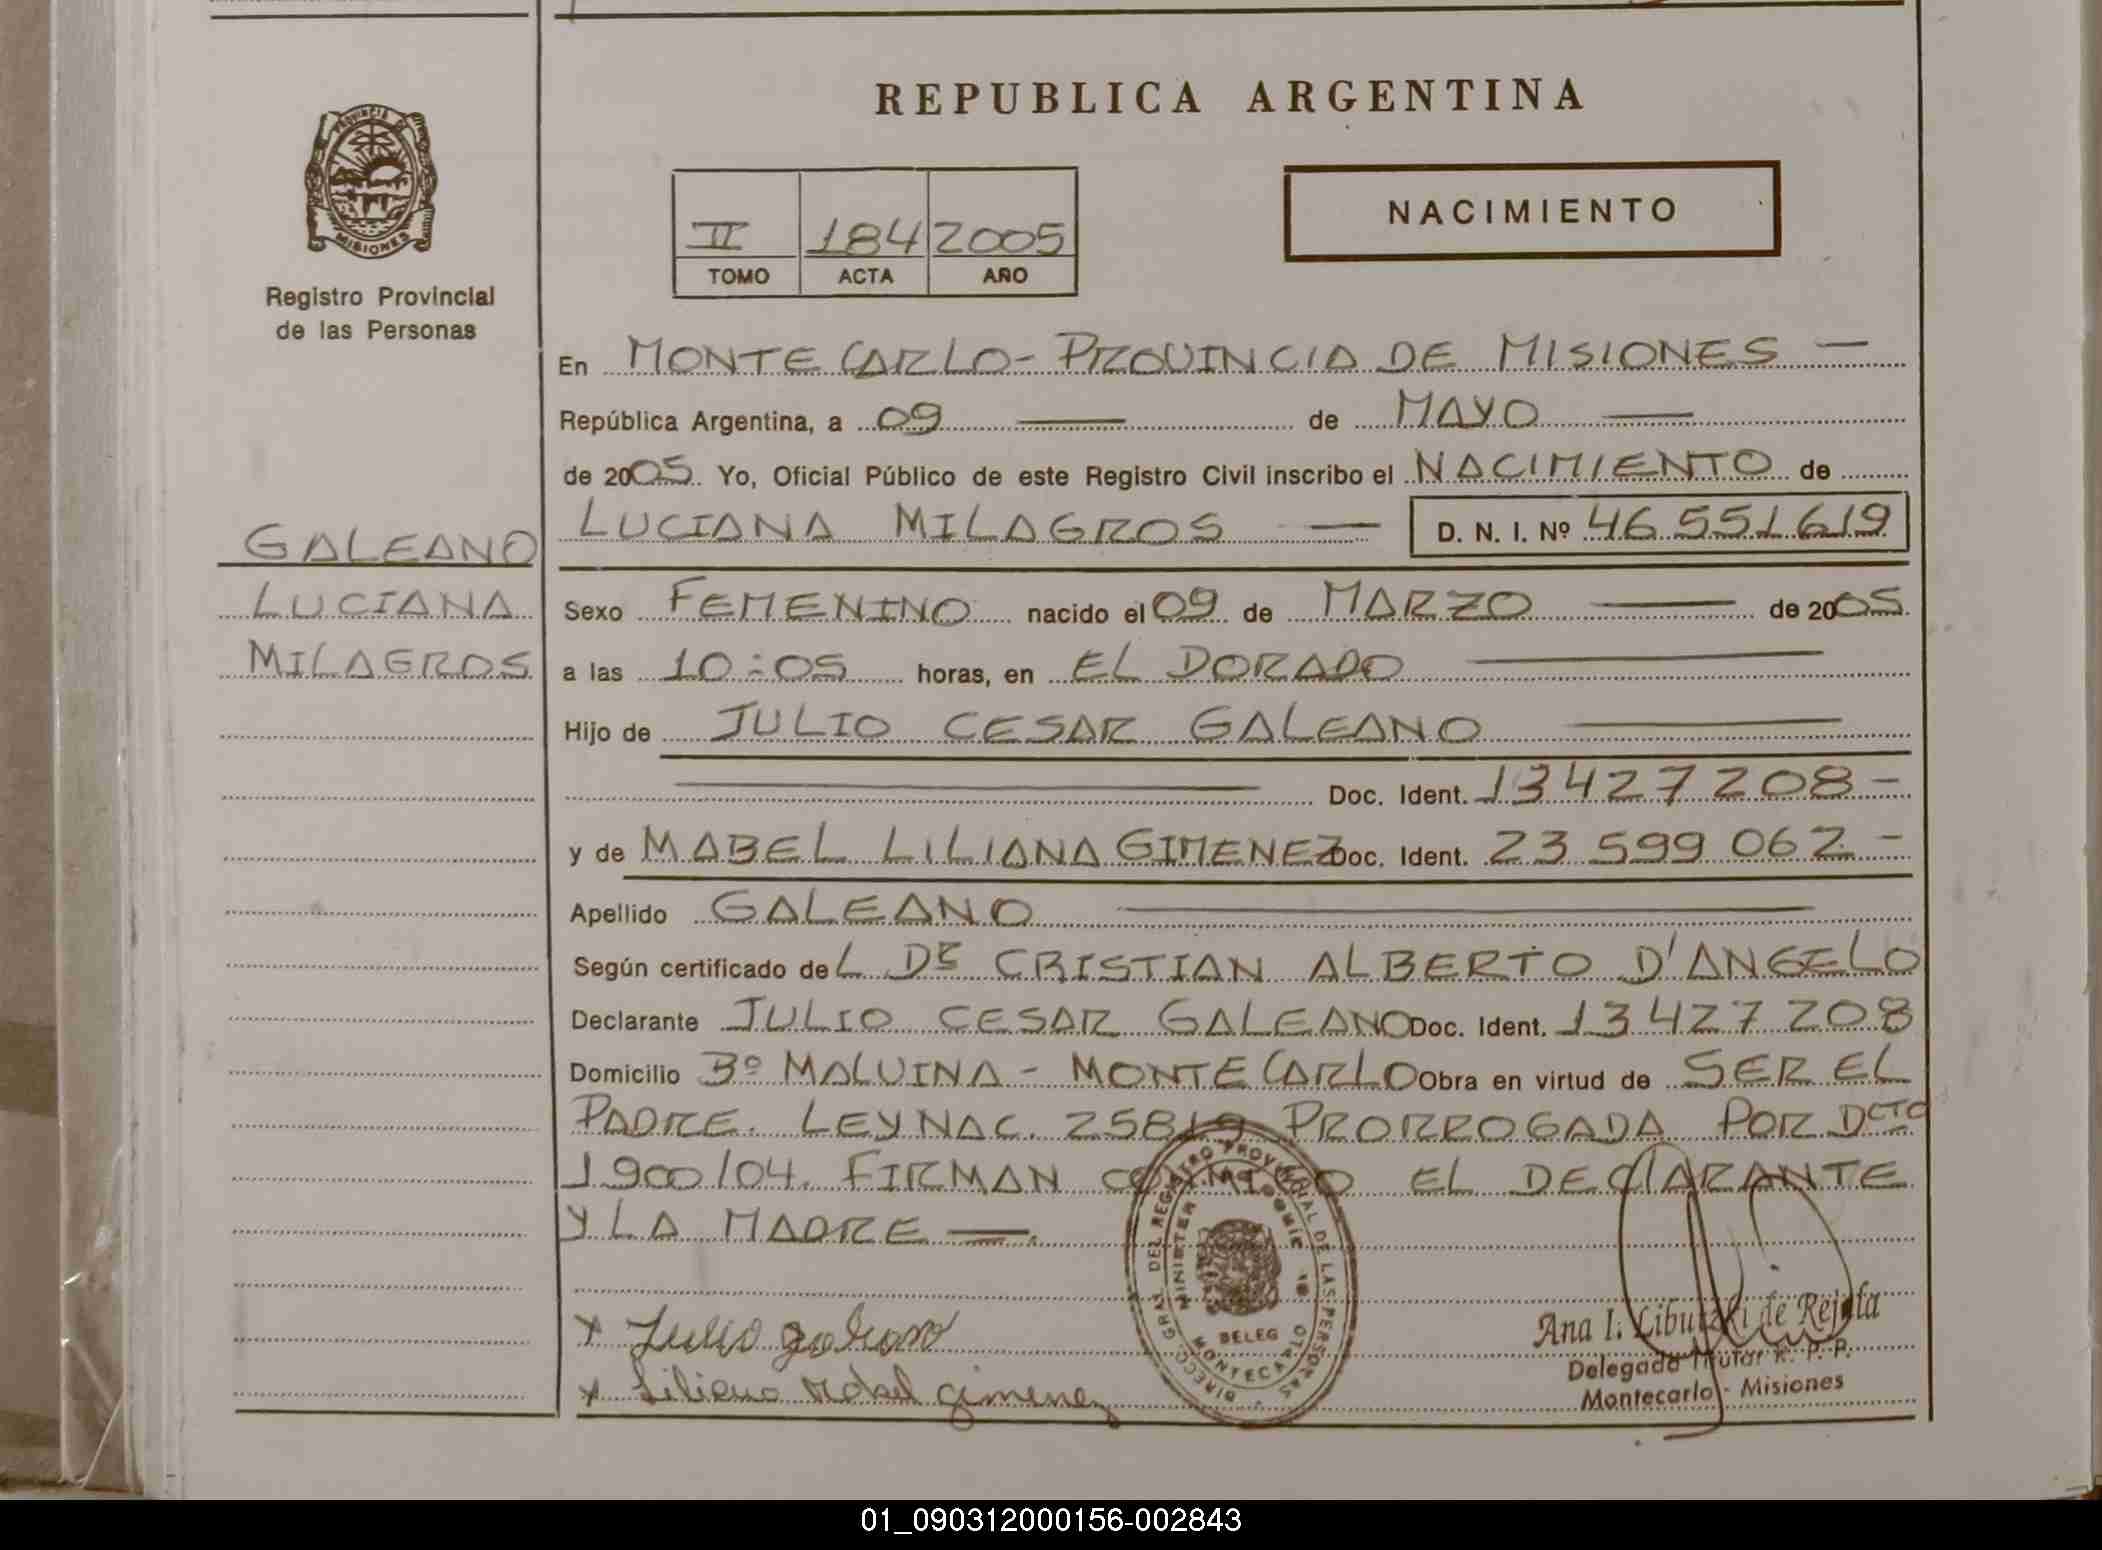 REPUBLICA ARGENTINA
PROVINCIA DE
MISIONES
Registro Provincial
de las Personas
NACIMIENTO
II 184 2005
TOMO ACTA AÑO
En MONTECARLO - PROVINCIA DE MISIONES —
República Argentina, a 09 — de MAYO —
de 2005. Yo, Oficial Público de este Registro Civil inscribo el NACIMIENTO de
LUCIANA MILAGROS — D. N. I. Nº 46.551.619
GALEANO
LUCIANA
MILAGROS
Sexo FEMENINO nacido el 09 de MARZO — de 2005
a las 10:05 horas, en EL DORADO —
Hijo de JULIO CESAR GALEANO —
— Doc. Ident. 13 427 208 -
y de MABEL LILIANA GIMENEZ Doc. Ident. 23 599 062 -
Apellido GALEANO —
Según certificado del DR CRISTIAN ALBERTO D'ANGELO
Declarante JULIO CESAR GALEANO Doc. Ident. 13 427 208
Domicilio Bº MALVINA - MONTECARLO Obra en virtud de SER EL
PADRE. LEY NAC. 25819 PRORROGADA POR DCTO
1900/04. FIRMAN CONMIGO EL DECLARANTE
Y LA MADRE —.
DIRECC. GRAL. DEL REGISTRO PROVINCIAL DE LAS PERSONAS
DELEG
MONTECARLO
x Julio galeano
x Liliana Mabel Gimenez
Ana I. de
Delegada Titular R. P. P.
Montecarlo - Misiones
01_090312000156-002843